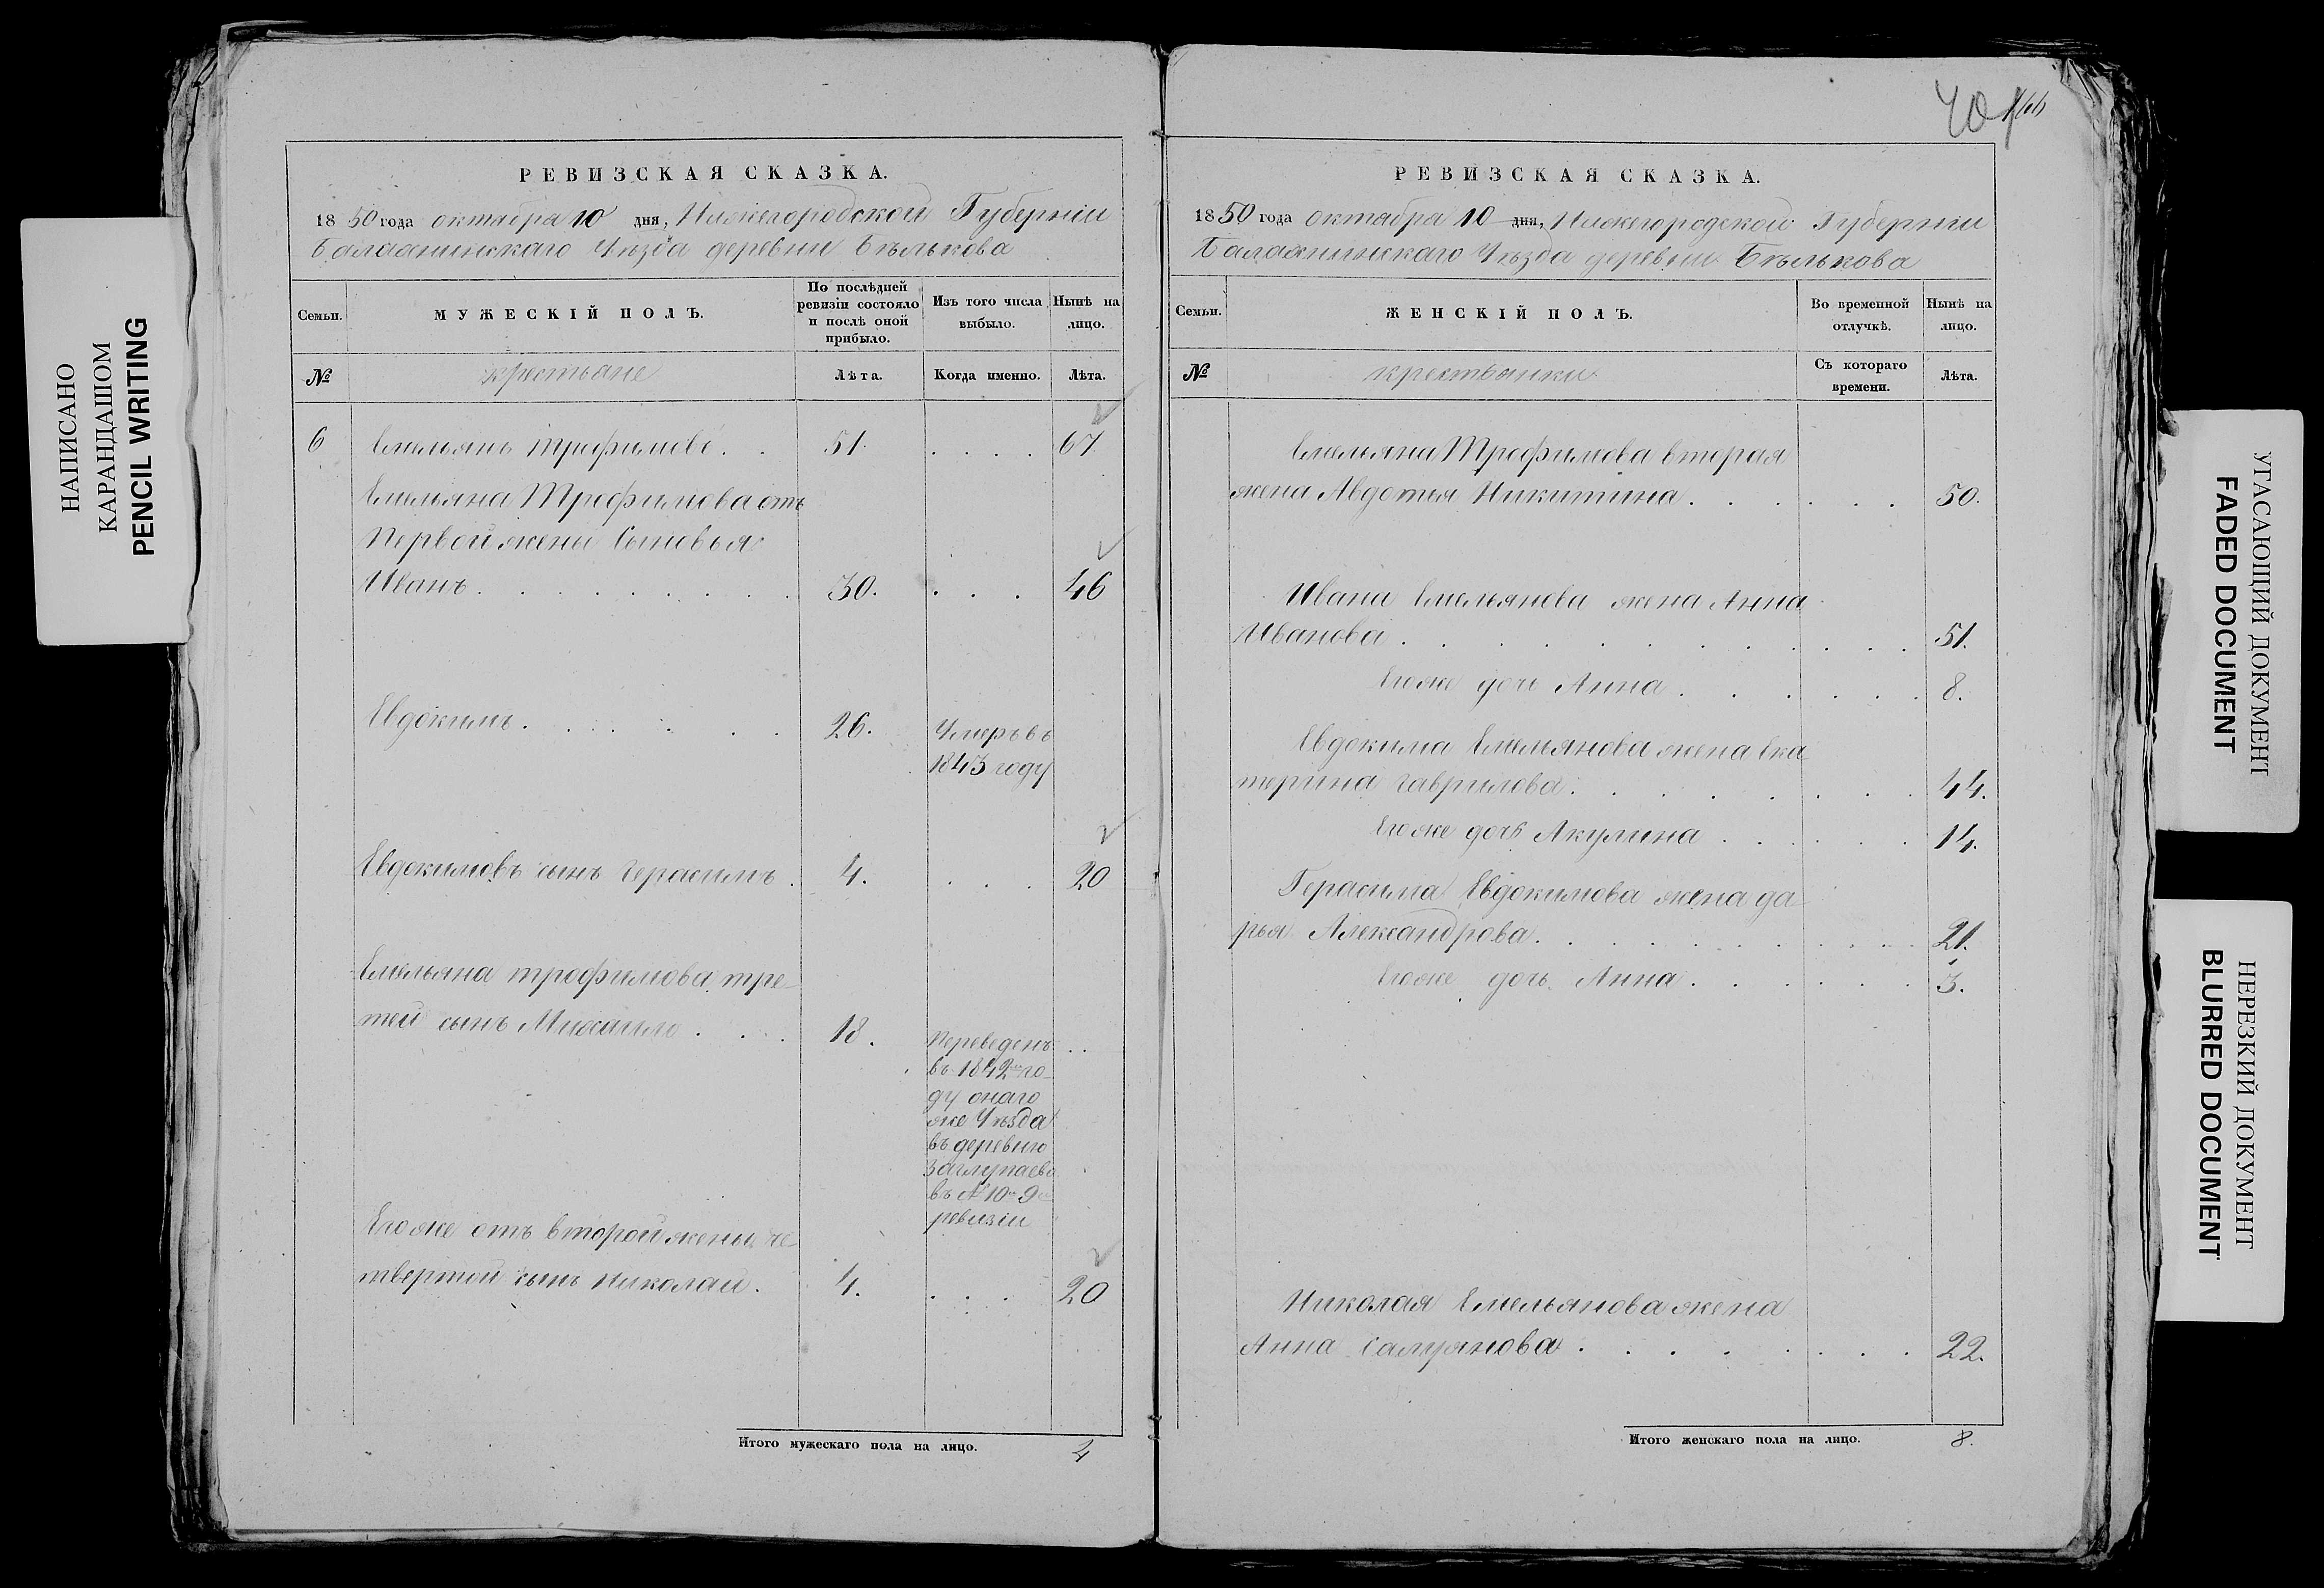 НАПИСАНО
КАРАНДАШОМ
PENCIL WRITING
РЕВИЗСКАЯ СКАЗКА.
1850 года октября 10 дня, Нижегородской Губерніи
Балахнинскаго Уѣзда деревни Бѣлькова
Семьи.
МУЖЕСКІЙ ПОЛЪ.
По послѣдней ревизіи состояло и послѣ оной прибыло.
Изъ того числа выбыло.
Нынѣ на лицо.
№
крестьяне
Лѣта.
Когда именно.
Лѣта.
6 Емельянъ Трофимовъ . . 51. . . . . 67.
Емельяна Трофимова отъ
Первой жены Сыновья
Иванъ . . . . . . . . 30. . . . 46
Евдокимъ . . . . . . 26. Умеръ въ
1843 году
Евдокимовъ сынъ Герасимъ . 4. . . . 20
Емельяна трофимова тре-
тей сынъ Михайло . . . 18. Переведенъ . .
въ 1842м го-
ду онаго
же Уѣзда
въ деревню
въ № 10м 9й
ревизіи
Его же отъ второй жены че-
твертой сынъ Николай . 4. . . . 20
Итого мужескаго пола на лицо. 4
РЕВИЗСКАЯ СКАЗКА.
1850 года октября 10 дня, Нижегородской Губерніи
Балахнинскаго Уѣзда деревни Бѣлькова
Семьи.
ЖЕНСКІЙ ПОЛЪ.
Во временной отлучкѣ.
Нынѣ на лицо.
№
крестьянки
Съ котораго времени.
Лѣта.
Емельяна Трофимова вторая
жена Авдотья Никитина . . . . . 50.
Ивана Емельянова жена Анна
Иванова . . . . . . . . . . 51.
Его же дочь Анна . . . . . . 8.
Евдокима Емельянова жена Ека-
терина Гаврилова . . . . . . . 44.
Его же дочь Акулина . . . . . 14.
Герасима Евдокимова жена да-
рья Александрова . . . . . . . . 21.
Его же дочь Анна . . . . . . 3.
Николая Емельянова жена
Анна . . . . . . . 22.
Итого женскаго пола на лицо. 8.
УГАСАЮЩИЙ ДОКУМЕНТ
FADED DOCUMENT
НЕРЕЗКИЙ ДОКУМЕНТ
BLURRED DOCUMENT